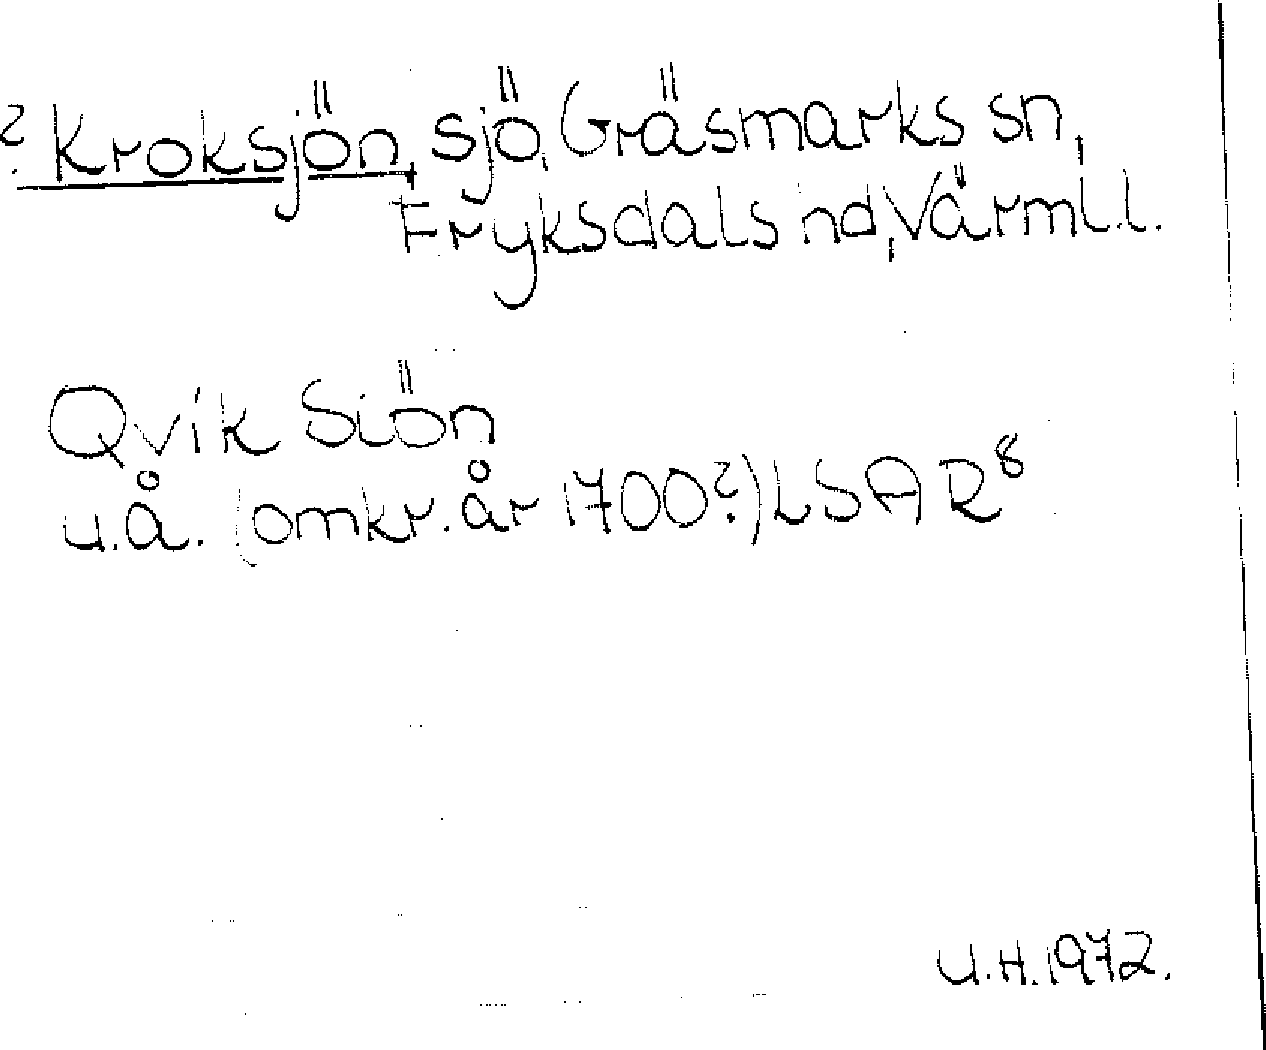 ? Kroksjön, sjö, Gräsmarks sn,
Fryksdals hd, Värml. l.
Qvik Siön
u.å. (omkr. år 1700?) LSA R8
U.H. 1972.